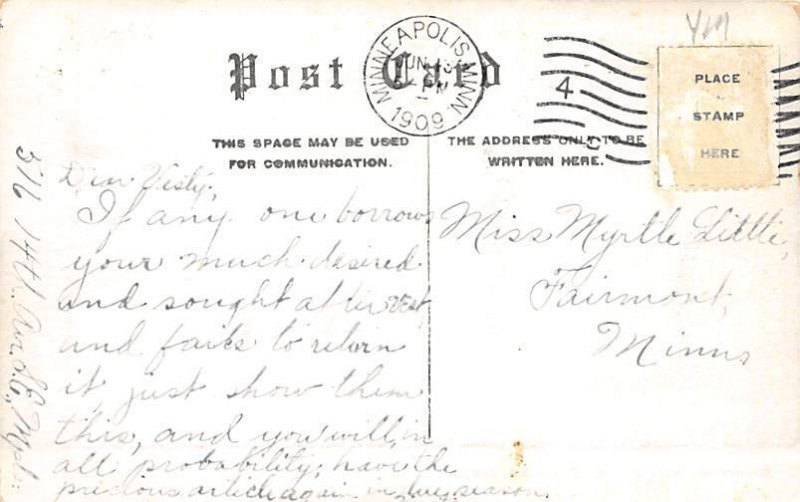 Post Card
MINNEAPOLIS, MINN.
JUN
PM
1909
4
PLACE
STAMP
HERE
THIS SPACE MAY BE USED
FOR COMMUNICATION.
THE ADDRESS ONLY TO BE
WRITTEN HERE.
Dear Vesty;
If any one borrows
your much desired
and sought after VEST,
and fails to return
it, just show them
this, and you will, in
all probability, have the
precious article again in due season.
Miss Myrtle Little,
Fairmont,
Minn
516 14th Ave S.E. Mpls.